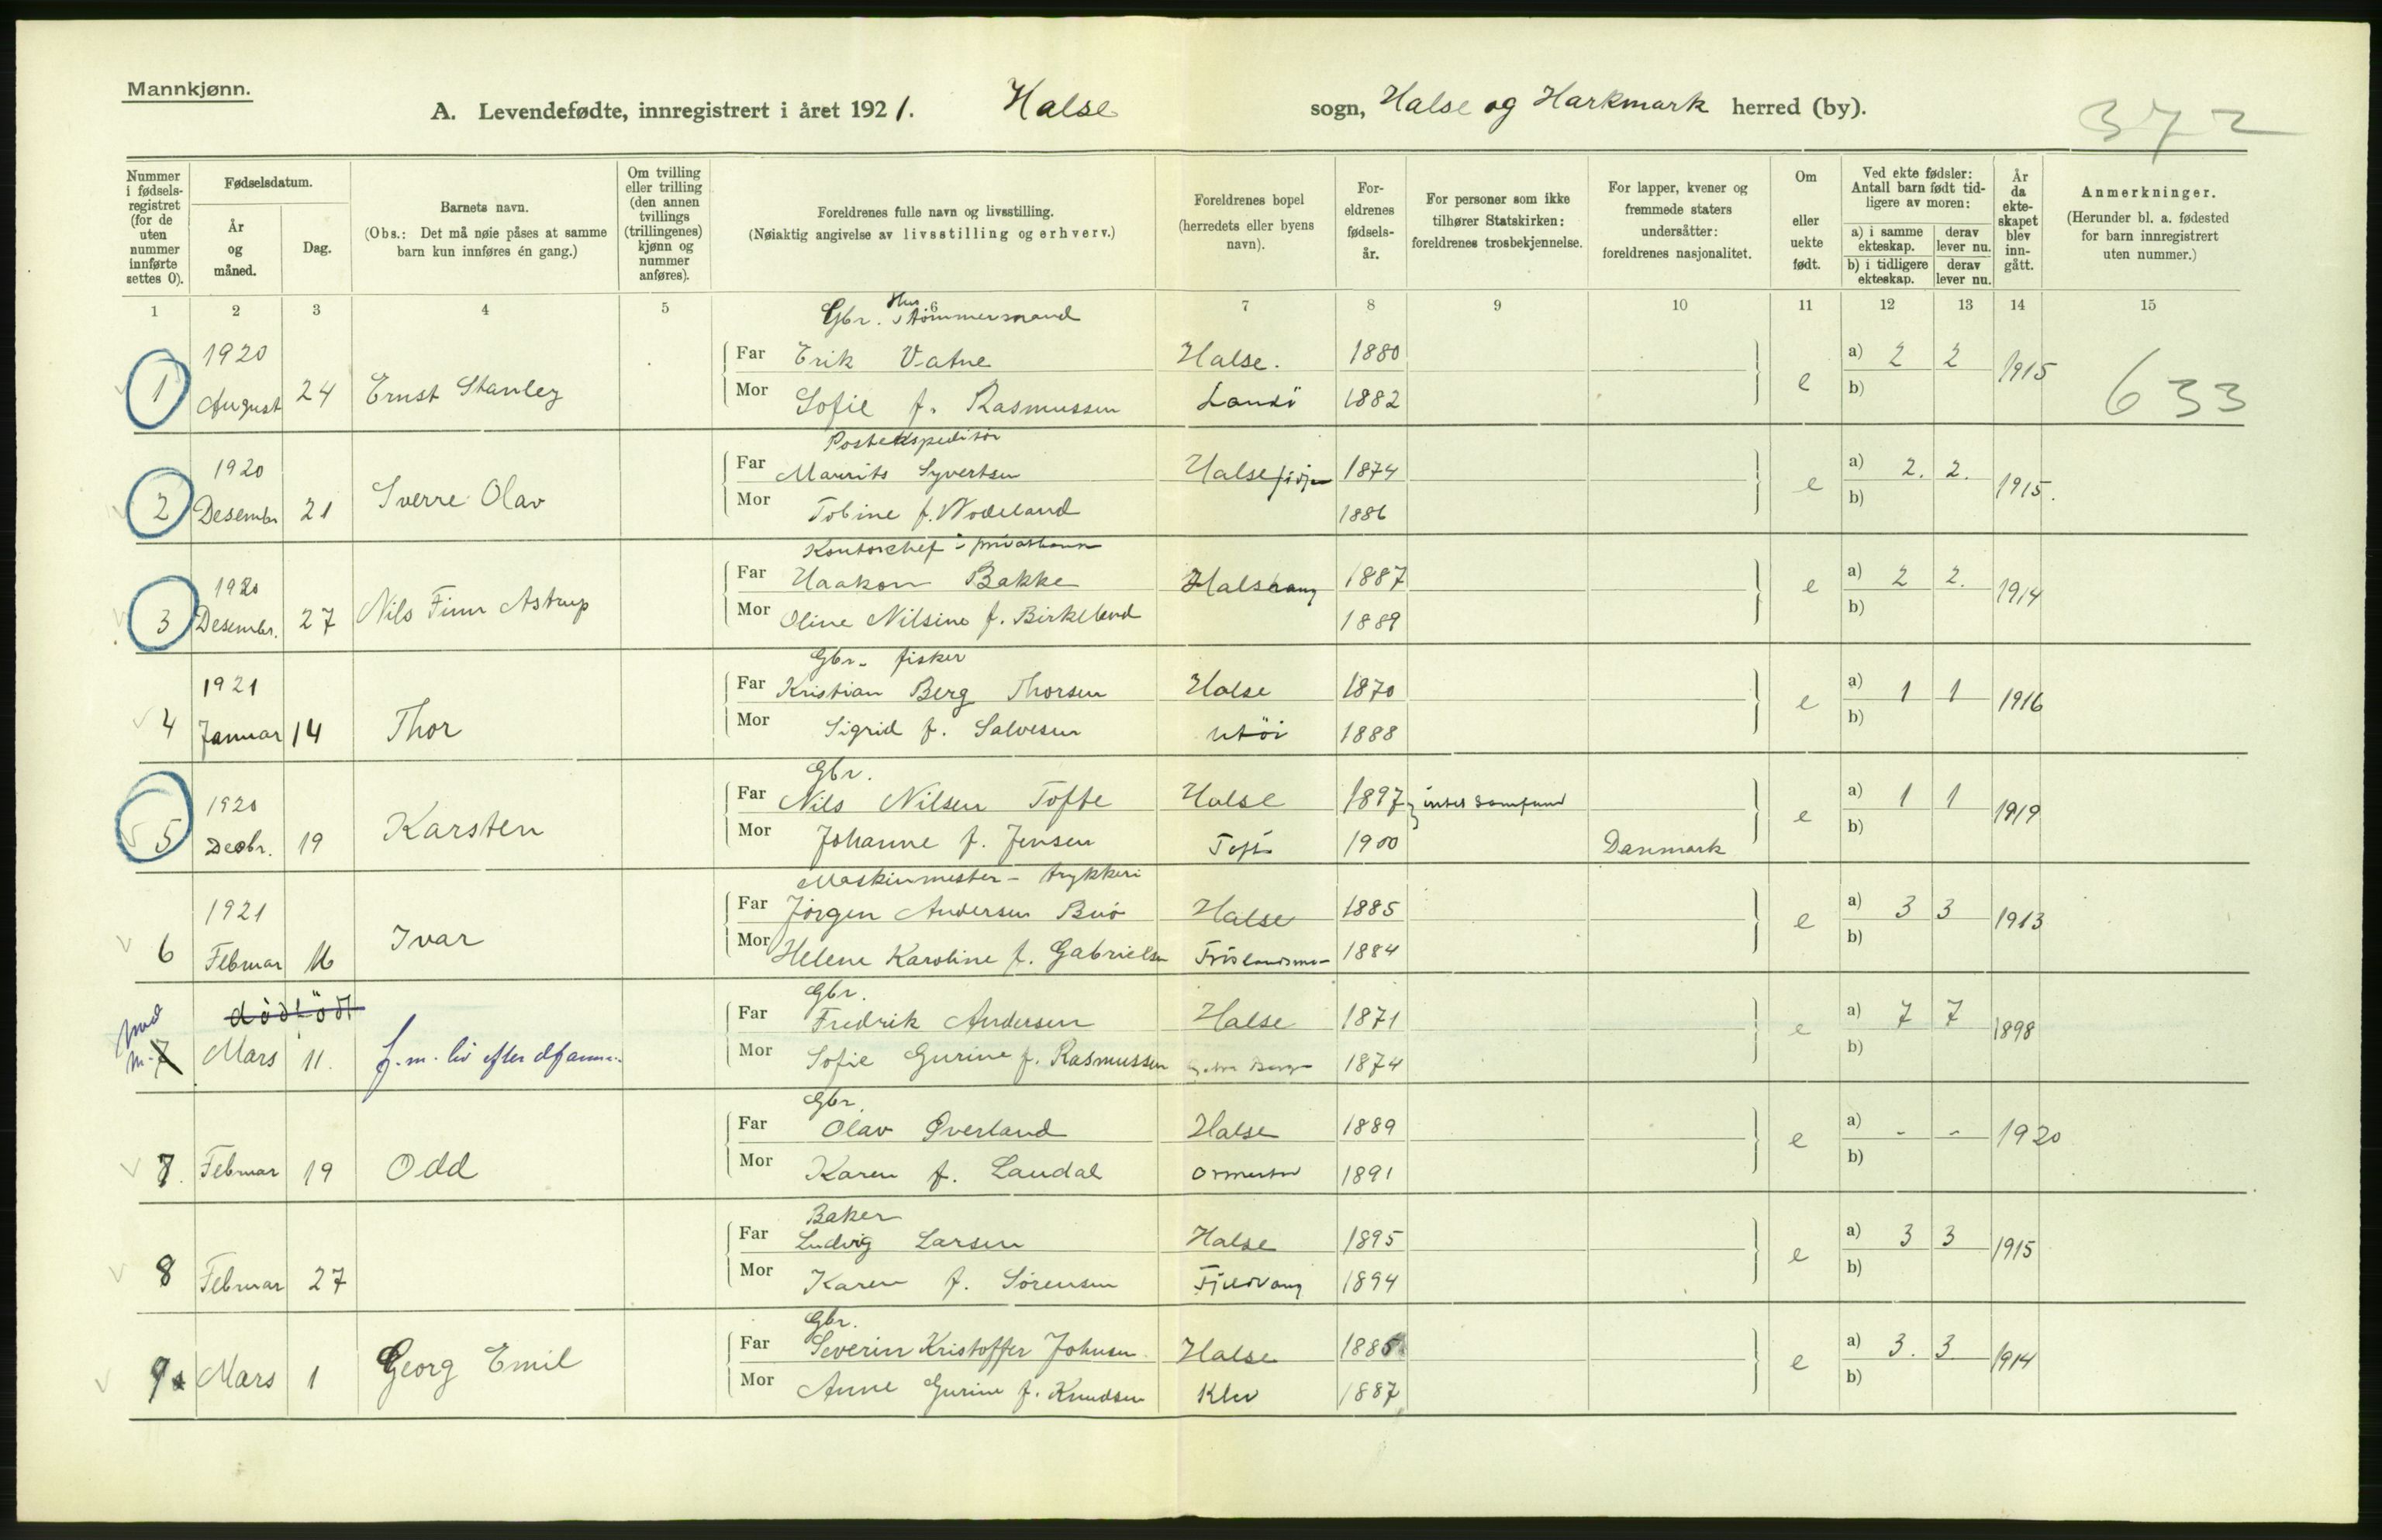 Mannkjønn.
A. Levendefødte, innregistrert i året 1921. Halse sogn, Halse og Harkmark herred (by).
372
Nummer i fødsels- registret (for de uten nummer innførte settes 0).
Fødselsdatum.
År og måned.
Dag.
Barnets navn.
(Obs.: Det må nøie påses at samme barn kun innføres én gang.)
Om tvilling eller trilling (den annen tvillings (trillingenes) kjønn og nummer anføres).
Foreldrenes fulle navn og livsstilling.
(Nøiaktig angivelse av livsstilling og erhverv.)
Foreldrenes bopel (herredets eller byens navn).
For- eldrenes fødsels- år.
For personer som ikke tilhører Statskirken: foreldrenes trosbekjennelse.
For lapper, kvener og fremmede staters undersåtter: foreldrenes nasjonalitet.
Om eller uekte født.
Ved ekte fødsler: Antall barn født tid- ligere av moren:
a) i samme ekteskap. derav lever nu.
b) i tidligere ekteskap. derav lever nu.
År da ekte- skapet blev inn- gått.
Anmerkninger.
(Herunder bl. a. fødested for barn innregistrert uten nummer.)
1 2 3 4 5 6 7 8 9 10 11 12 13 14 15
Gbr. Hus tømmermand
1920 Far Erik Vatne Halse. 1880 a) 2 2 1915
1 August 24 Ernst Stanley Mor Sofie f. Rasmussen 1882 e b) 633
Postekspeditør
1920 Far Maurits Syvertsen Halse 1874 a) 2. 2. 1915.
2 Desembr 21 Sverre Olav Mor Tobine f. Wodeland 1886 e b)
Kontorchef i
1920 Far Haakon Bakke 1887 a) 2 2. 1914
3 Desembr. 27 Nils Finn Astrup Mor Oline Nilsine f. Birkeland 1889 e b)
Gbr. fisker
1921 Far Kristian Berg Thorsen Halse 1870 a) 1 1 1916
4 Januar 14 Thor Mor Sigrid f. Salvesen 1888 e b)
Gbr.
1920 Far Nils Nilsen Tofte Halse 1897 intet samfund a) 1 1 1919
5 Decbr. 19 Karsten Mor Johanne f. Jensen 1900 Danmark e b)
Maskinmester - trykkeri
1921 Far Jørgen Andersen Buø Halse 1885 a) 3 3 1913
6 Februar 16 Ivar Mor Helene Karoline f. Gabrielsen 1884 e b)
Gbr.
dødfødt Far Fredrik Andersen Halse 1871 a) 7 7 1898
7 Mars 11. Mor Sofie Gurine f. Rasmussen 1874 e b)
Gbr.
Far Olav Øverland Halse 1889 a) - - 1920
7. Februar 19 Odd Mor Karen f. Laudal 1891 e b)
Baker
Far Ludvig Larsen Halse 1895 a) 3 3 1915
8 Februar 27 Mor Karen f. Sørensen Fjeldvang 1894 e b)
Gbr.
Far Severin Kristoffer Johnsen Halse 1885 a) 3. 3 1914
9 Mars 1 Georg Emil Mor Anne Gurine f. Knudsen Klev 1887 e b)